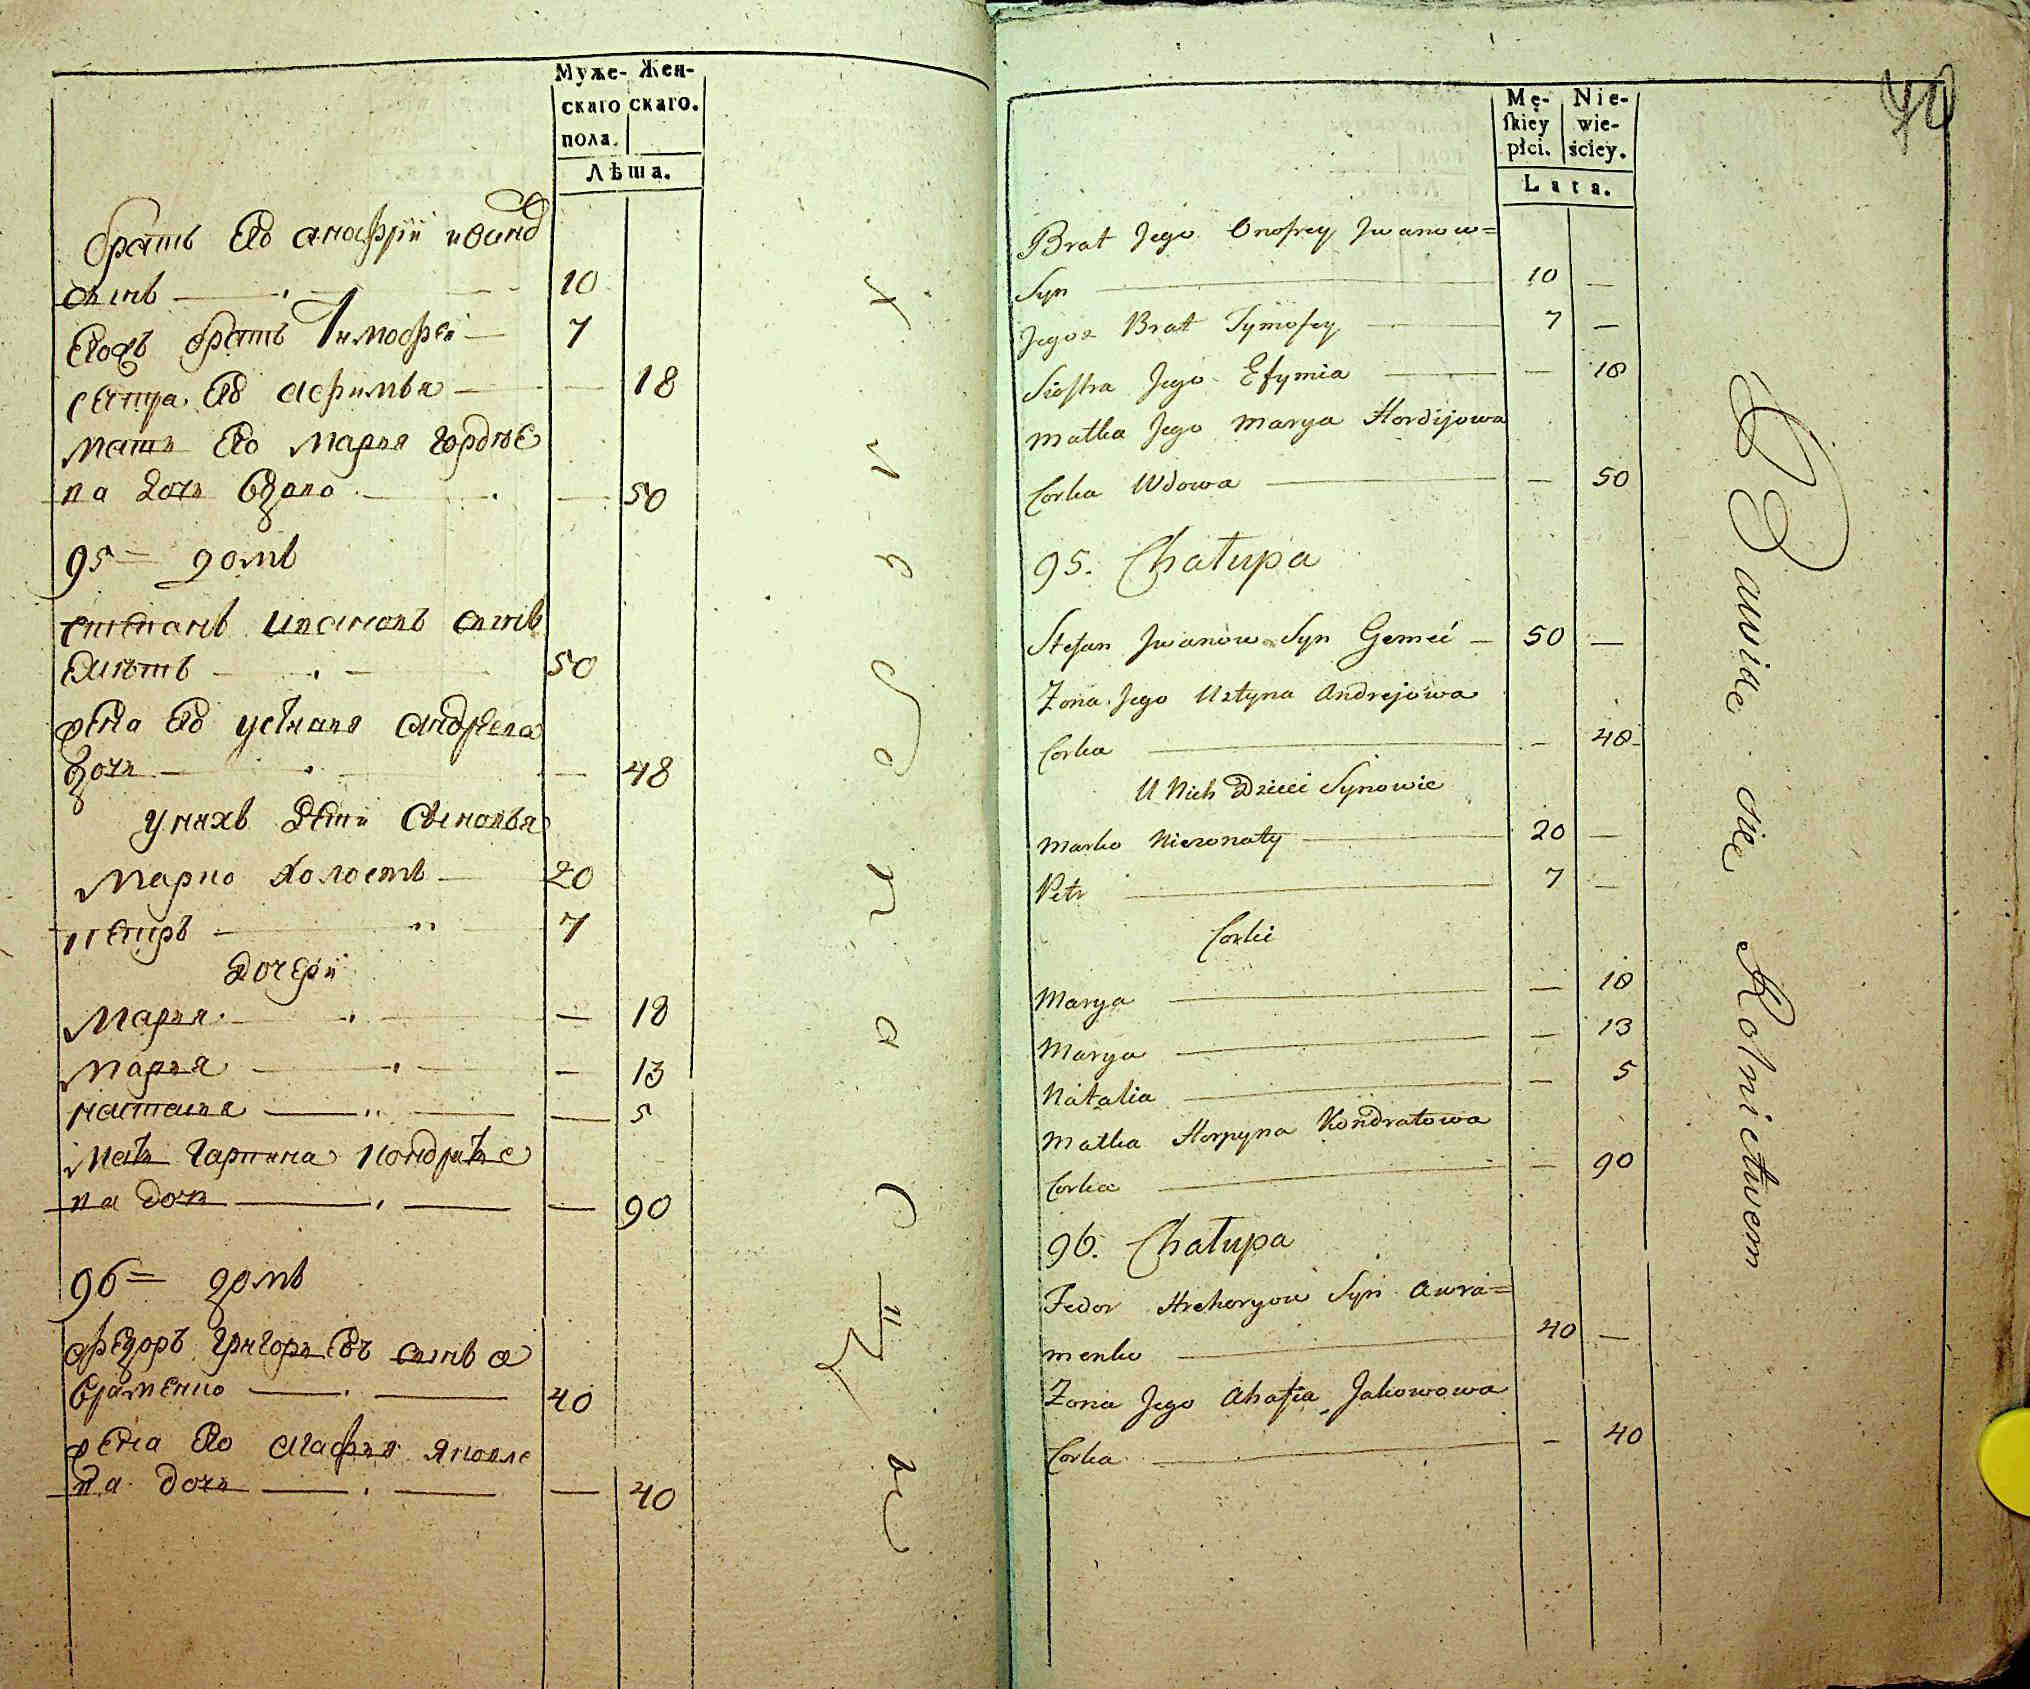 Муже- Жен-
скаго скаго.
пола.
Лѣта.
братъ Его анофрій ивановъ
сынъ 10
Егожъ братъ Тимофей 7
сестра Его афимья 18
мати Его Марья гордѣе
ва дочь вдова 50
95 домъ
степанъ ивановъ сынъ
50
жена Его устиния андреева
дочь 48
у нихъ дети сыновья
Марко холостъ 20
петръ 7
дочери
Марья 18
Марья 13
наталя 5
Мать гарпина кондратье
ва дочь 90
96 домъ
федоръ григорьевъ сынъ а
враменко 40
жена Его агафья яковле
ва дочь 40
40
Mę- Nie-
skiey wie-
płci. ściey.
Lata.
Brat Jego Onofrey Jwanow=
Syn 10 —
Jegoż Brat Tymofey 7 —
Siostra Jego Efymia — 18
Matka Jego Marya Hordijowa
Corka Wdowa — 50
95. Chałupa
Stefan Jwanow Syn Gemeć 50 —
Zona Jego Ustyna Andrejowa
Corka — 48
U Nich Dzieci Synowie
Marko Niezonaty 20 —
Petr 7 —
Corki
Marya — 18
Marya — 13
Natalia — 5
Matka Horpyna Kondratowa
Corka — 90
96. Chałupa
Fedor Hrehoryow Syn Awra=
menko 40 —
Zona Jego Ahafia Jakowowa
Corka — 40
Bawiące się Rolnictwem